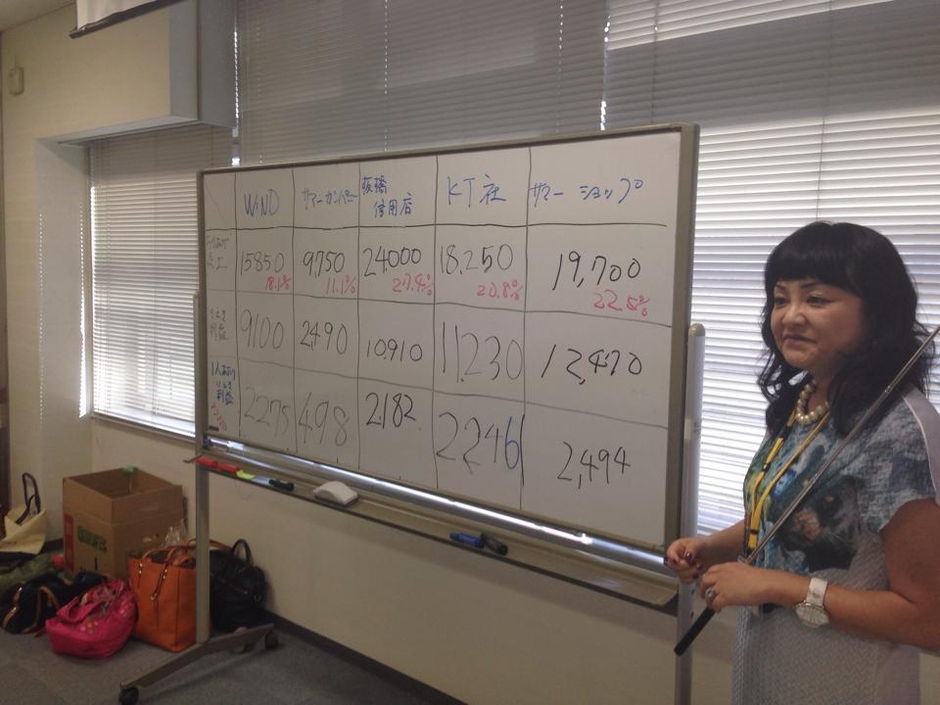 WIND
サマーカンパニー
板橋
信用店
KT社
サマーショップ
15850
18.1%
9,750
11.1%
24,000
27.4%
18,250
20.8%
19,700
22.5%
利益
9100
2,490
10,910
11,230
12,470
1人あたり
利益
2275
498
2,182
2,246
2,494